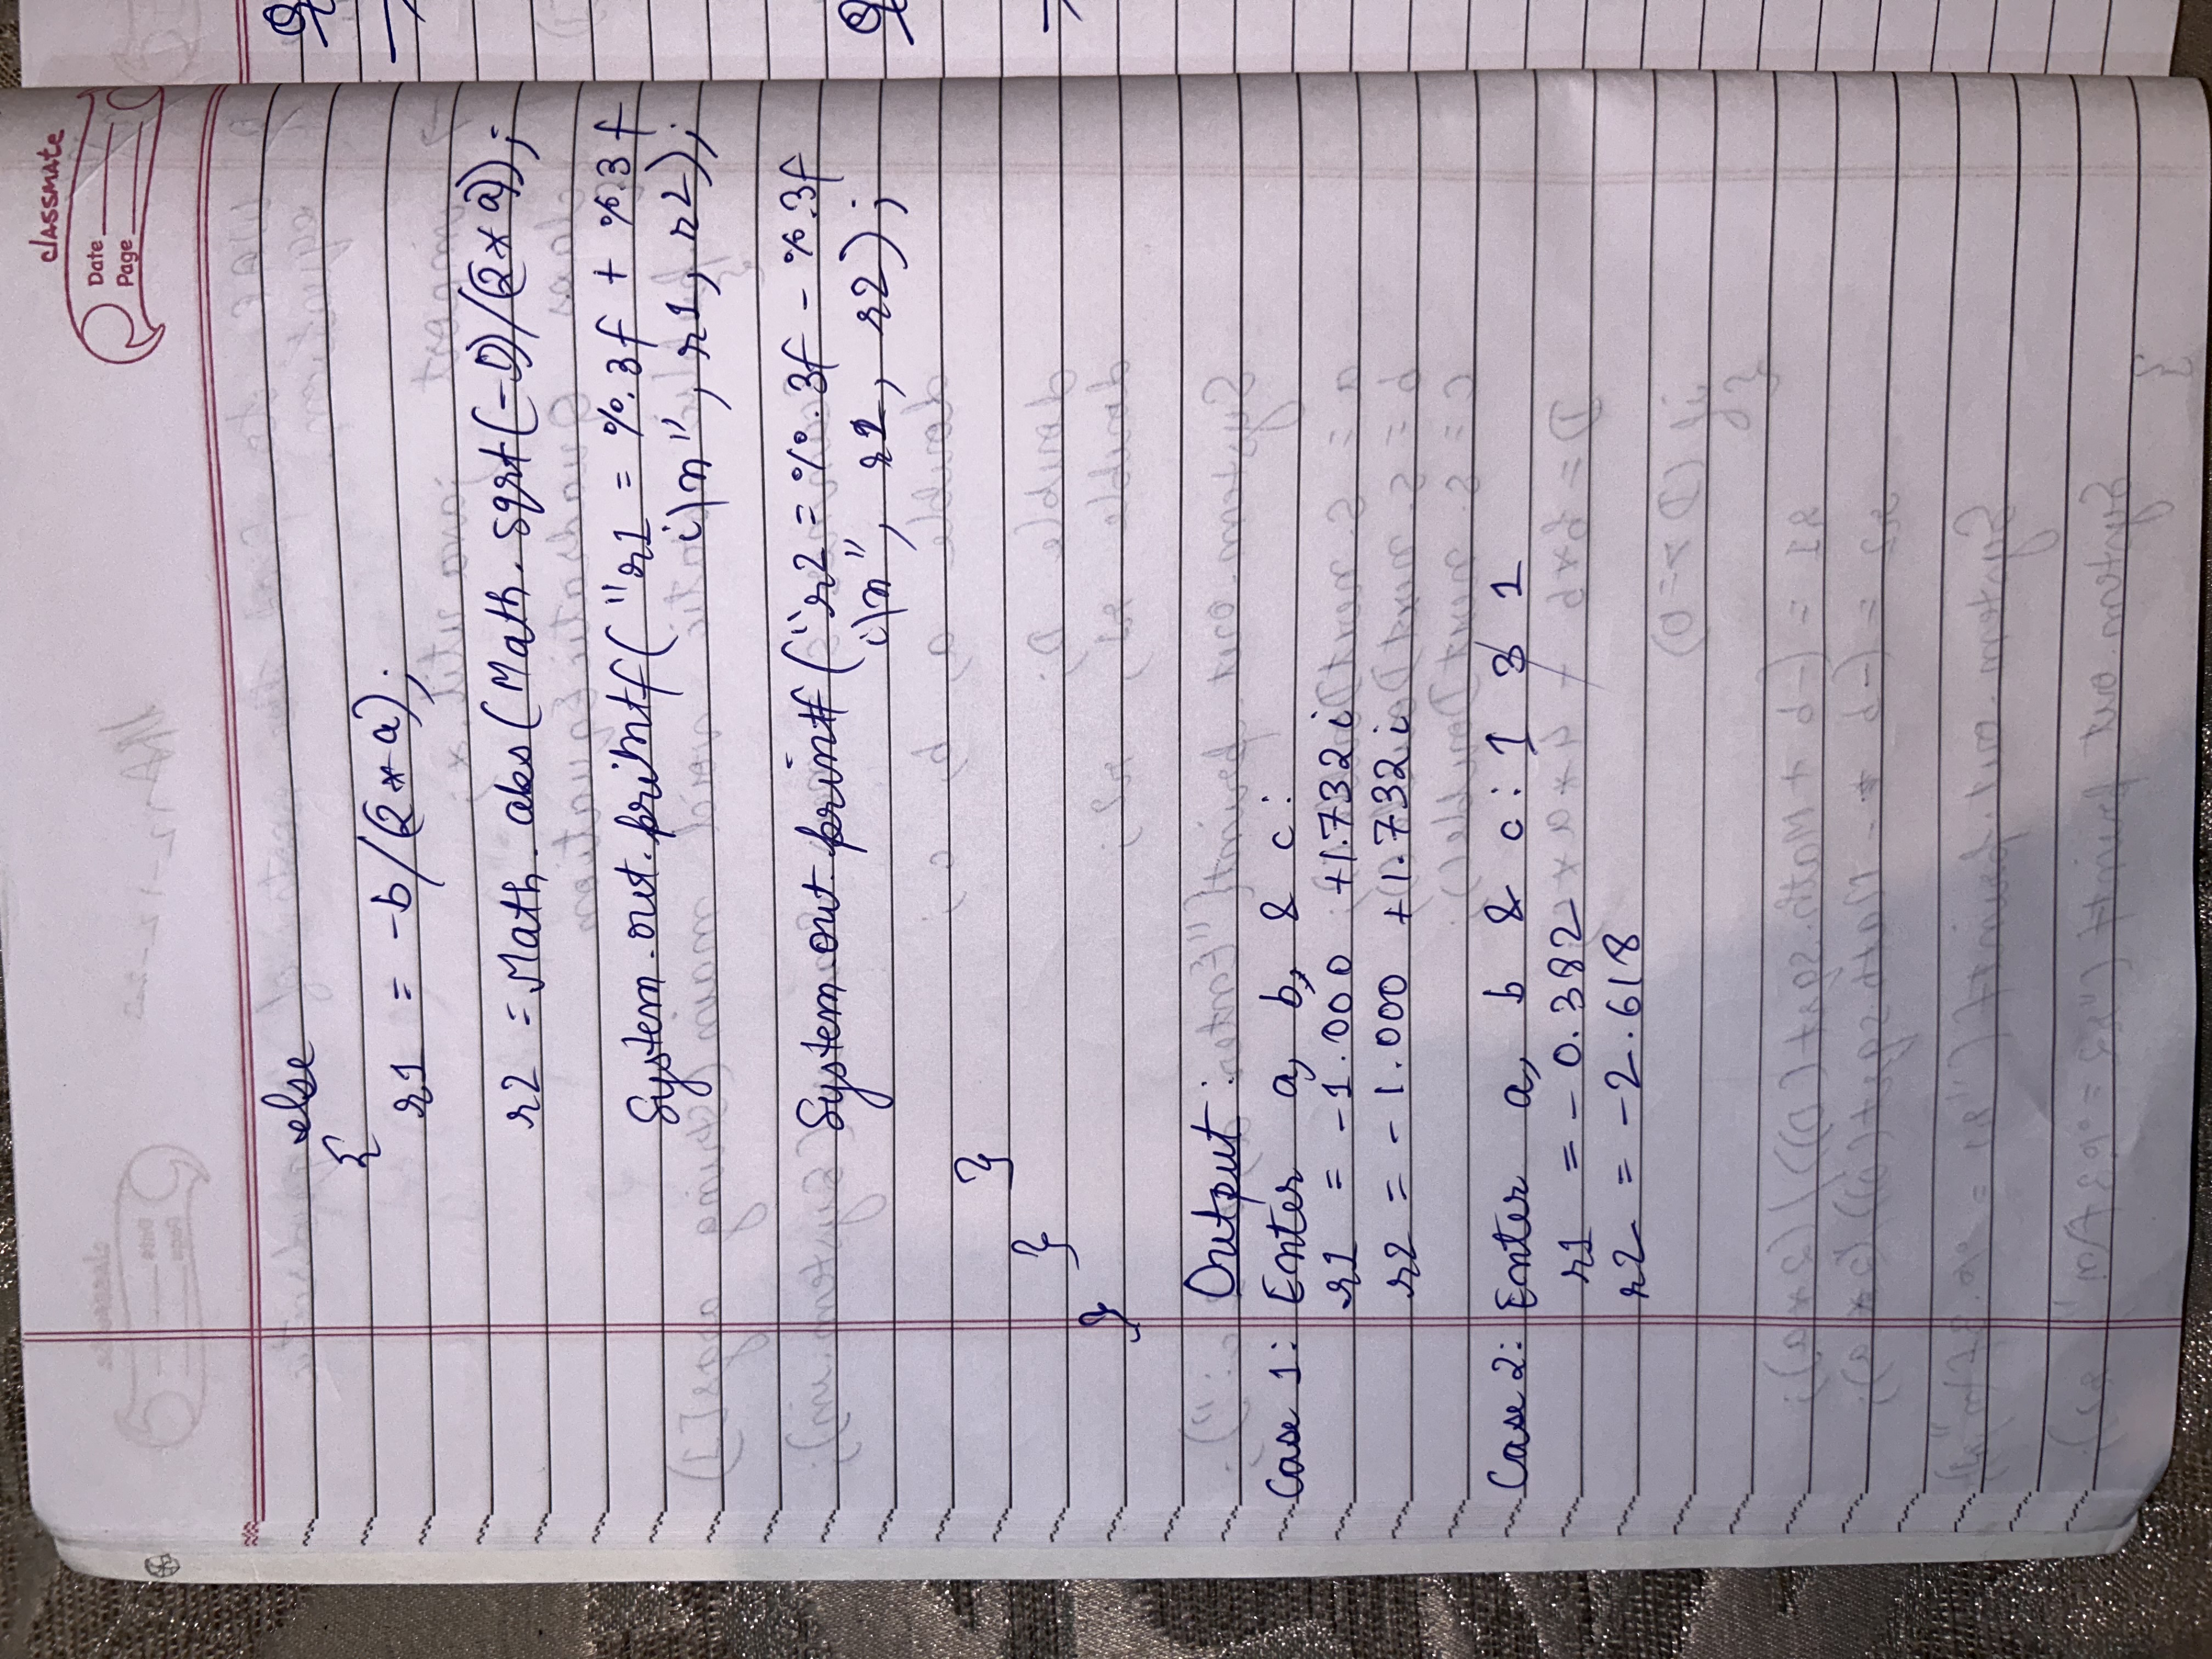 classmate
Date
Page
else
{
r1 = -b/(2*a);
r2 = Math.abs(Math.sqrt(-D)/(2*a));
System.out.printf("r1 = %.3f + %.3f
i\n", r1, r2);
System.out.printf("r2 = %.3f - %.3f
i\n", r1, r2);
}
}
}
Output:
Case 1: Enter a, b, & c:
r1 = -1.000 +1.732i
r2 = -1.000 +1.732i
Case 2: Enter a, b & c: 1 3 1
r1 = -0.382
r2 = -2.618